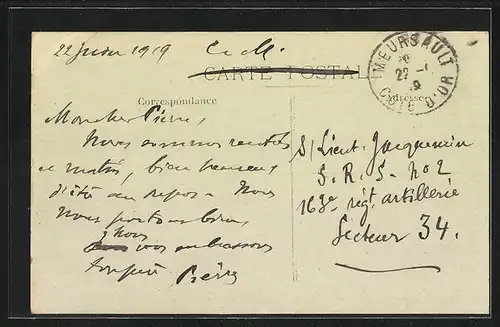 22 juin 1919 C. M.
CARTE POSTALE
MEURSAULT
22
CÔTE D'OR
Correspondance
Adresse
Mon cher Pierre,
Nous sommes rentrés
ce matin, bien heureux
d'être au repos. Nous
nous portons bien,
nous
vous embrassons
Pierre
S/Lieut. Jacquemin
S. R. S. no 2
163e régt artillerie
Secteur 34.